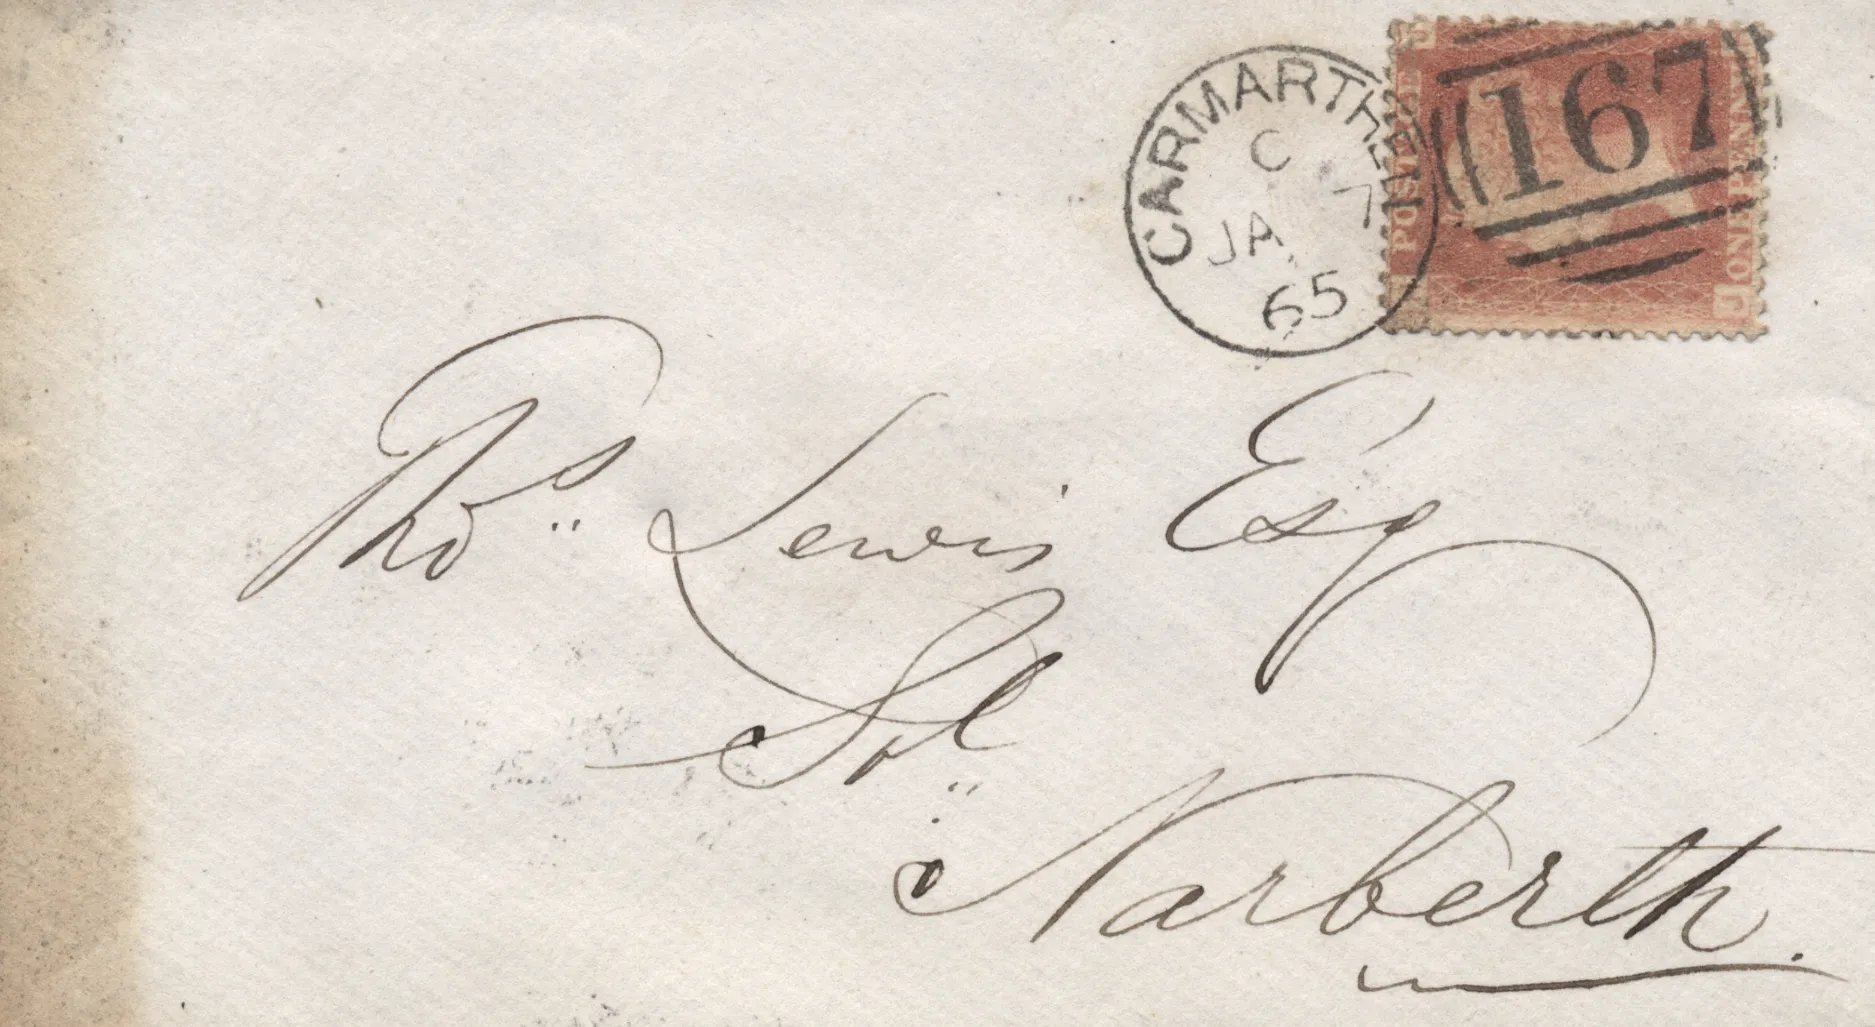 CARMARTHEN
C
JA 7
65
167
POSTAGE
ONE PENNY
J
Thos Lewis Esq
Solr
Narberth.